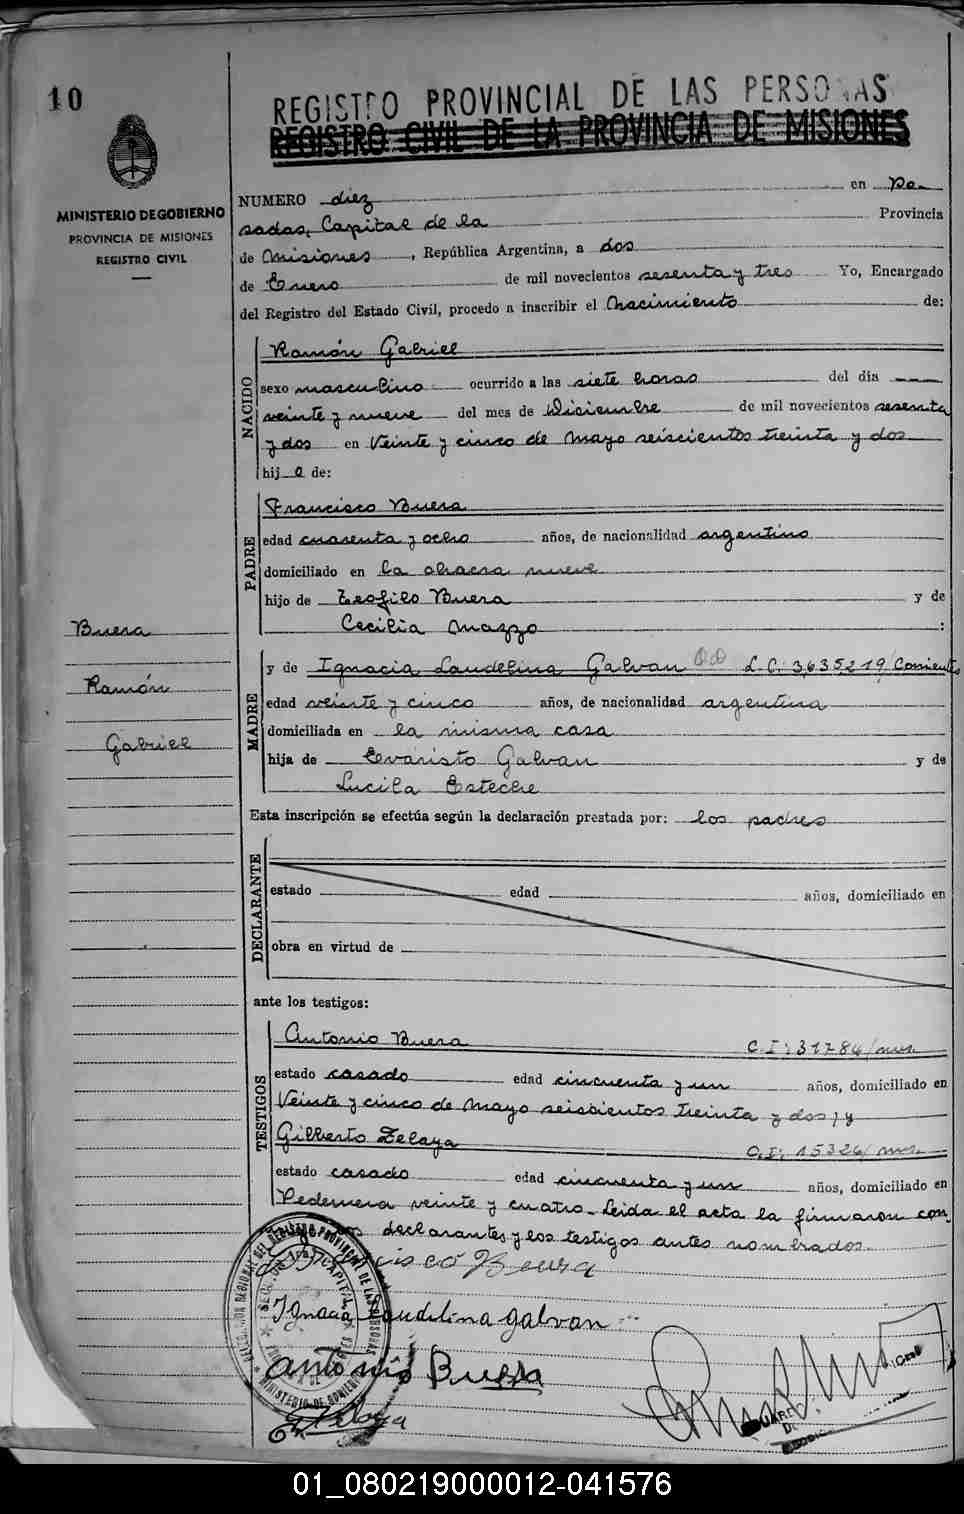 10
REGISTRO PROVINCIAL DE LAS PERSONAS
REGISTRO CIVIL DE LA PROVINCIA DE MISIONES
MINISTERIO DE GOBIERNO
PROVINCIA DE MISIONES
REGISTRO CIVIL
NUMERO diez en Po-
sadas, Capital de la Provincia
de Misiones, República Argentina, a dos
de Enero de mil novecientos sesenta y tres Yo, Encargado
del Registro del Estado Civil, procedo a inscribir el Nacimiento de:
NACIDO
Ramón Gabriel
sexo masculino ocurrido a las siete horas del día
veinte y nueve del mes de Diciembre de mil novecientos sesenta
y dos en Veinte y cinco de Mayo seiscientos treinta y dos
hij o de:
PADRE
Francisco Buera
edad cuarenta y ocho años, de nacionalidad argentino
domiciliado en la chacra nueve
hijo de Teofilo Buera y de
Cecilia Mazzo :
Buera
Ramón
Gabriel
MADRE
y de Ignacia Laudelina Galvan L.C: 3635219/Corrientes
edad veinte y cinco años, de nacionalidad argentina
domiciliada en la misma casa
hija de Evaristo Galvan y de
Lucila Esteche
Esta inscripción se efectúa según la declaración prestada por: los padres
DECLARANTE
estado edad años, domiciliado en
obra en virtud de
ante los testigos:
TESTIGOS
Antonio Buera C.I: 31784/mns.
estado casado edad cincuenta y un años, domiciliado en
Veinte y cinco de Mayo seiscientos treinta y dos; y
Gilberto Zelaya C.I: 15326/mns.
estado casado edad cincuenta y un años, domiciliado en
Pedernera veinte y cuatro. Leida el acta la firmaron con
declarantes y los testigos antes nombrados.
Buera
Ignacia Laudelina galvan
antonio Buera
G Zelaya
01_080219000012-041576